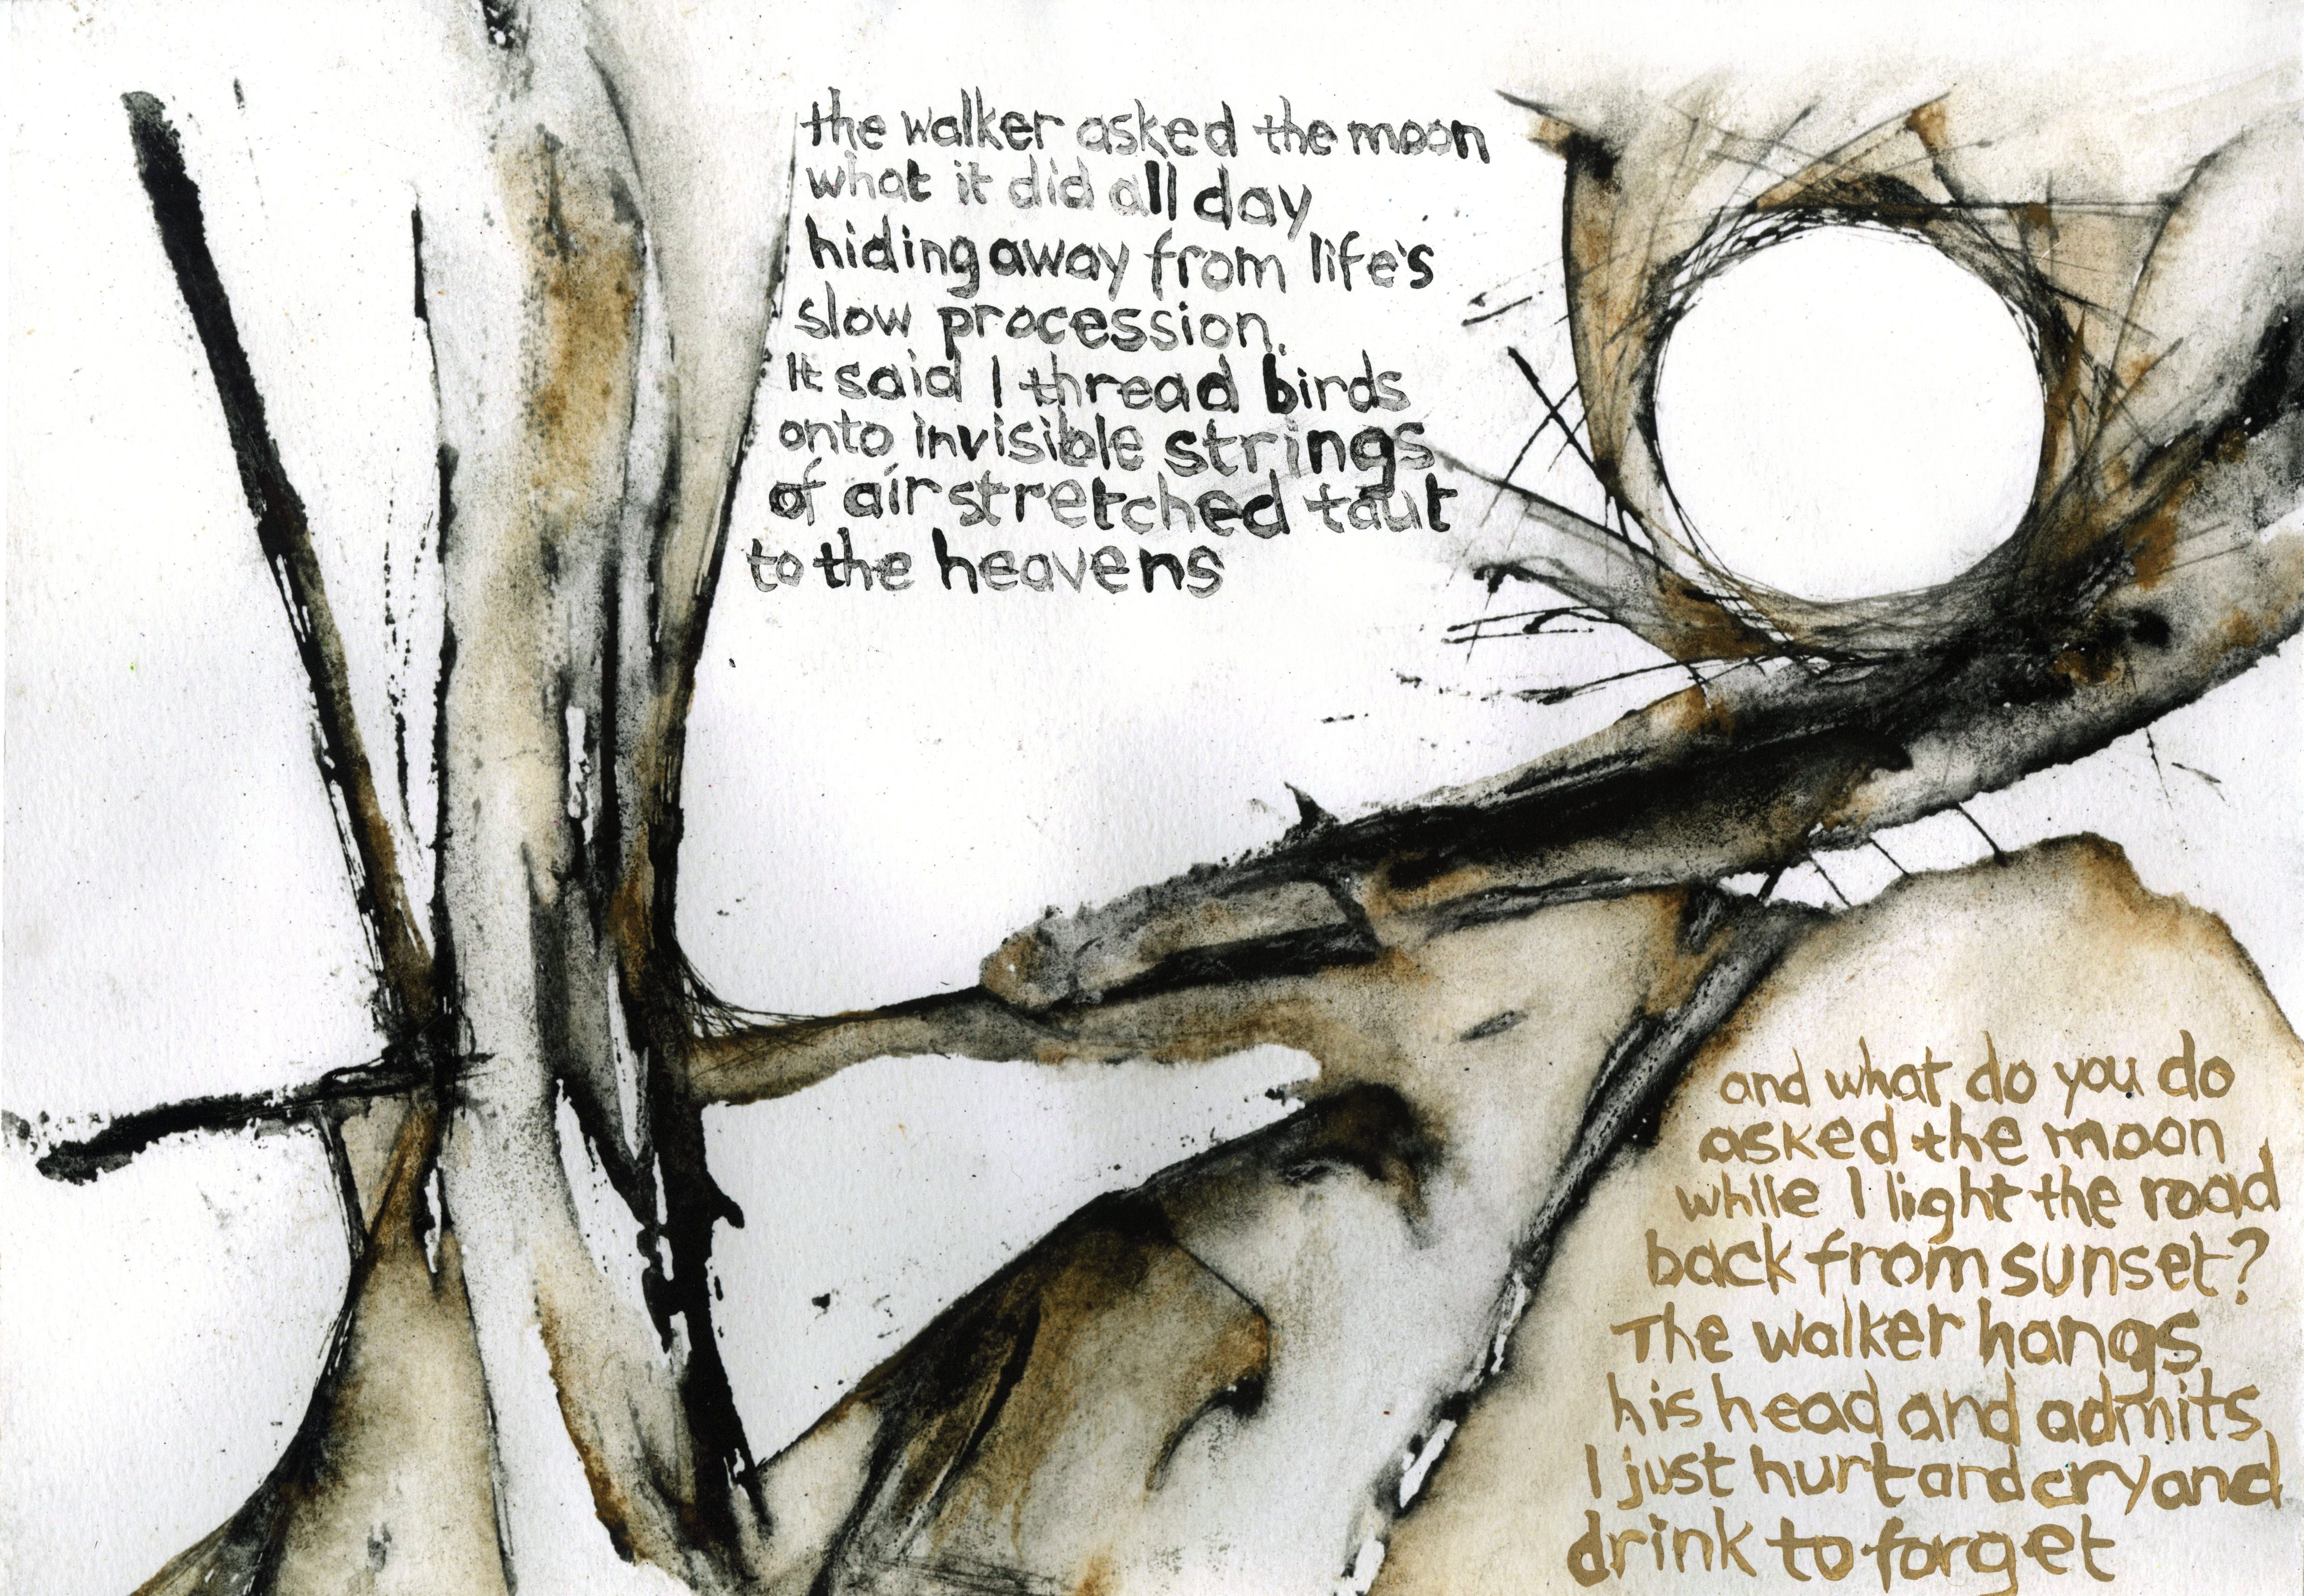 the walker asked the moon
what it did all day
hiding away from life's
slow procession.
It said I thread birds
onto invisible strings
of air stretched taut
to the heavens
and what do you do
asked the moon
while I light the road
back from sunset?
The walker hangs
his head and admits
I just hurt and cry and
drink to forget